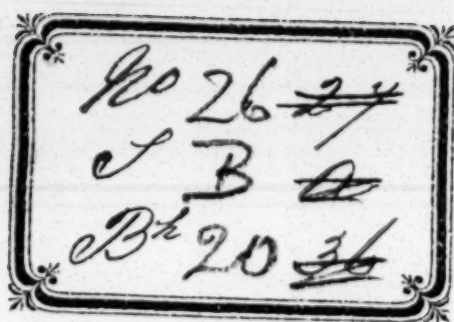 No 26 27
S B a
Bk 20 36